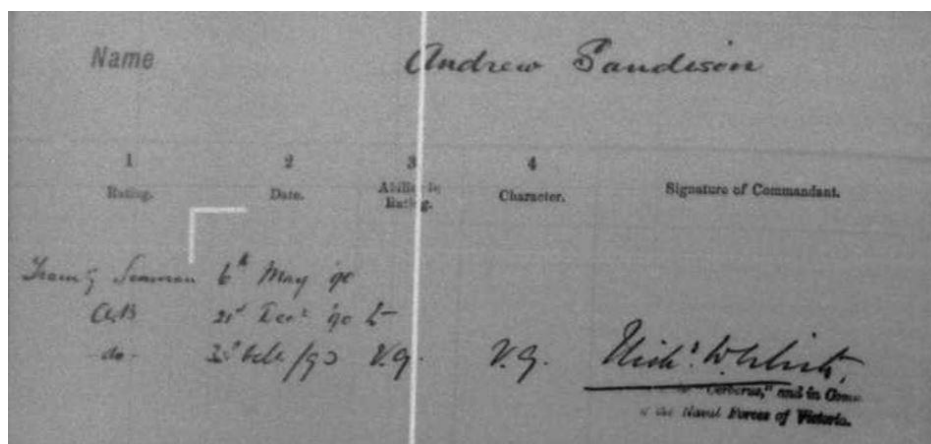 Name Andrew Sandison
1 2 3 4
Rating. Date. Ability in Rating. Character. Signature of Commandant.
Seaman 6th May '90
A.B. 21st Decr '90 to
do /93 V.G. V.G.
"Cerberus," and in Comm
of the Naval Forces of Victoria.